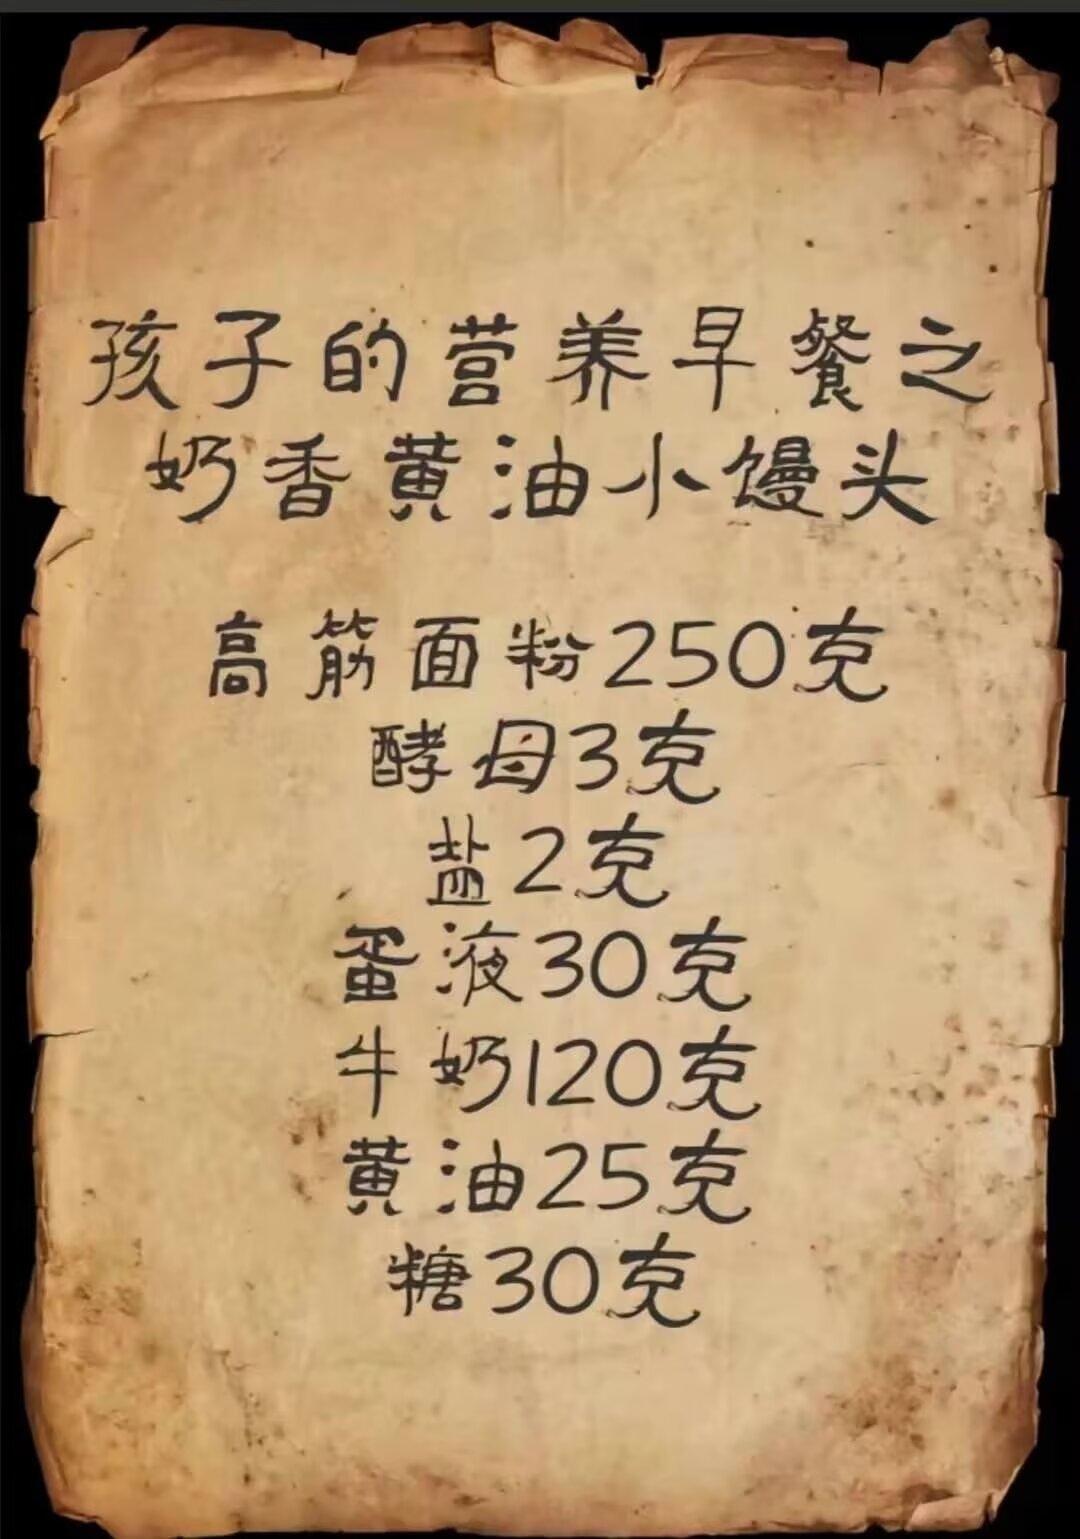 孩子的营养早餐之
奶香黄油小馒头
高筋面粉250克
酵母3克
盐2克
蛋液30克
牛奶120克
黄油25克
糖30克